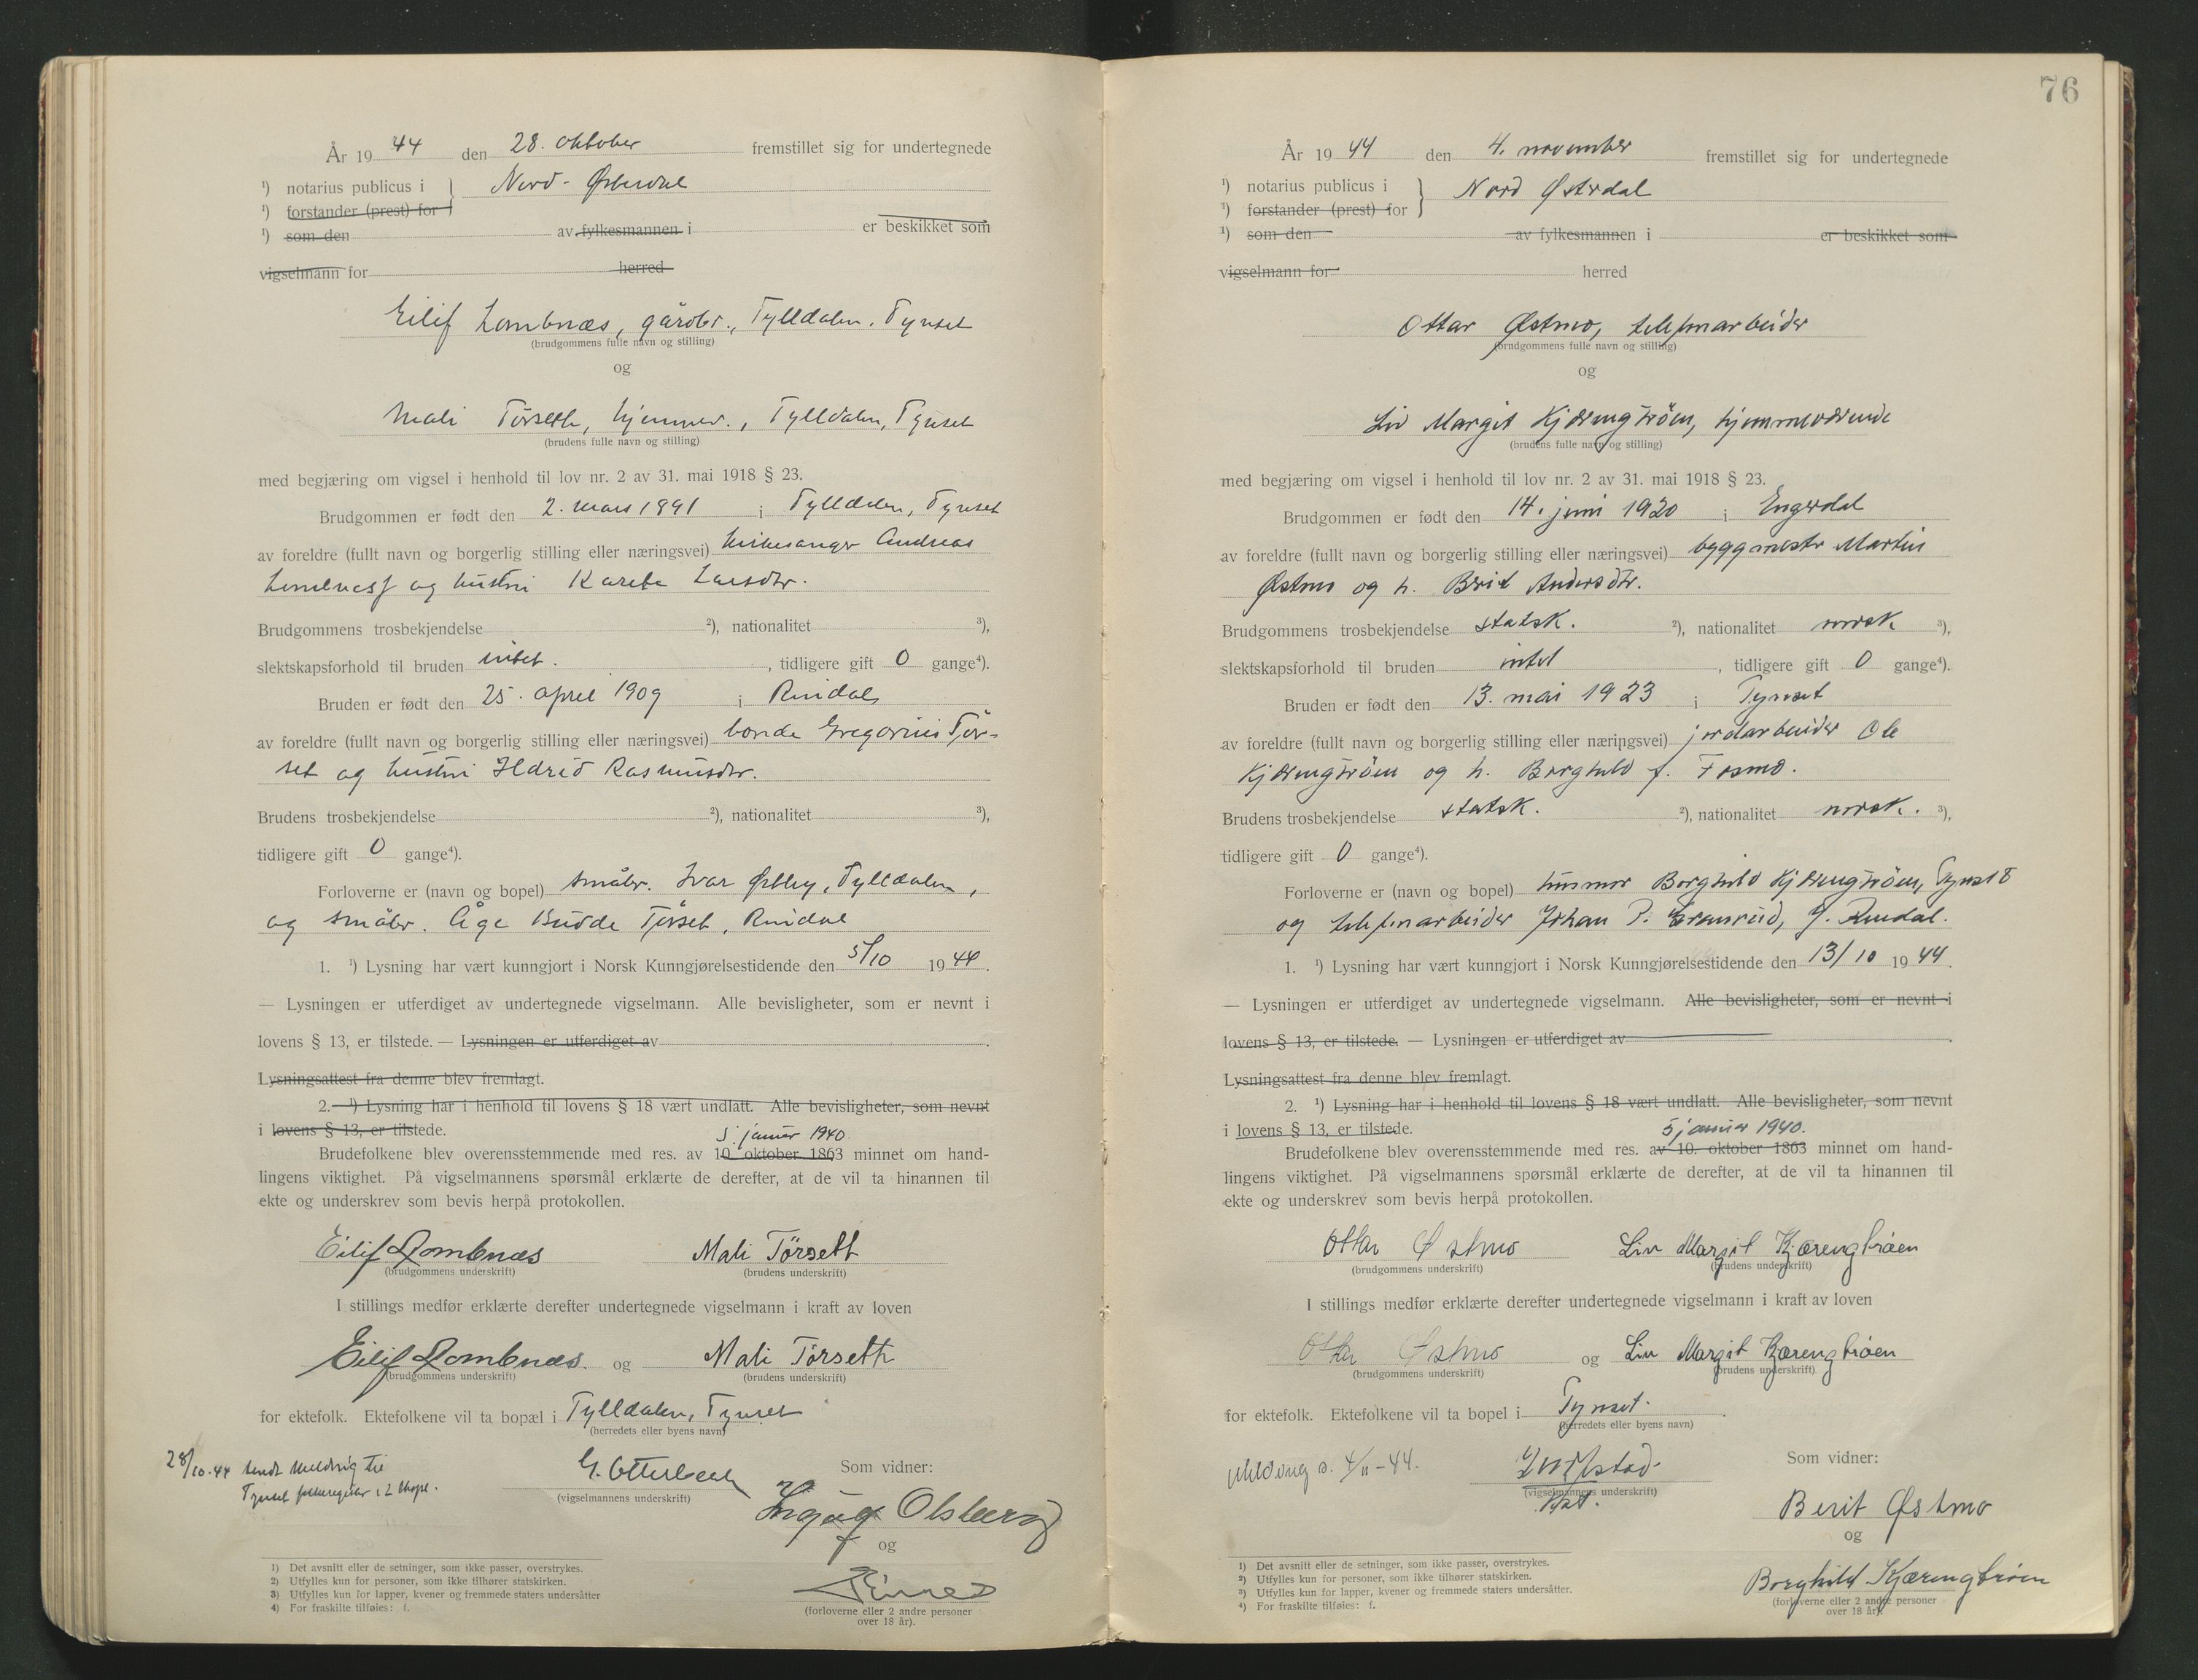 År 19 44 den 28. oktober fremstillet sig for undertegnede
¹) notarius publicus i } Nord-Østerdal
¹) forstander (prest) for
¹) som den av fylkesmannen i er beskikket som
vigselmann for herred
Eilif Lombnæs, gårdbr., Tylldalen, Tynset
(brudgommens fulle navn og stilling)
og
Mali Törseth, hjemmev., Tylldalen, Tynset
(brudens fulle navn og stilling)
med begjæring om vigsel i henhold til lov nr. 2 av 31. mai 1918 § 23.
Brudgommen er født den 2. mars 1891 i Tylldalen, Tynset
av foreldre (fullt navn og borgerlig stilling eller næringsvei) kirkesanger Andreas
og hustru Larsdtr.
Brudgommens trosbekjendelse ²), nationalitet ³),
slektskapsforhold til bruden intet. , tidligere gift 0 gange⁴).
Bruden er født den 25. april 1909 i Rindal
av foreldre (fullt navn og borgerlig stilling eller næringsvei) bonde Gregorius Tør-
set og hustru Ildrid Rasmusdtr.
Brudens trosbekjendelse ²), nationalitet ³),
tidligere gift 0 gange⁴).
Forloverne er (navn og bopel) småbr. Ivar Østby, Tylldalen,
og småbr. Åge Budde Törset, Rindal
1. ¹) Lysning har vært kunngjort i Norsk Kunngjørelsestidende den 5/10 19 44.
— Lysningen er utferdiget av undertegnede vigselmann. Alle bevisligheter, som er nevnt i
lovens § 13, er tilstede. — Lysningen er utferdiget av .
Lysningsattest fra denne blev fremlagt.
2. ¹) Lysning har i henhold til lovens § 18 vært undlatt. Alle bevisligheter, som nevnt
i lovens § 13, er tilstede.
5. januar 1940
Brudefolkene blev overensstemmende med res. av 10. oktober 1863 minnet om hand-
lingens viktighet. På vigselmannens spørsmål erklærte de derefter, at de vil ta hinannen til
ekte og underskrev som bevis herpå protokollen.
Eilif Lombnæs Mali Törseth
(brudgommens underskrift) (brudens underskrift)
I stillings medfør erklærte derefter undertegnede vigselmann i kraft av loven
Eilif Lombnæs. og Mali Törseth
(brudgommens underskrift) (brudens underskrift)
for ektefolk. Ektefolkene vil ta bopæl i Tylldalen, Tynset
(herredets eller byens navn)
28/10-44 sendt melding til
Tynset folkeregister i 2 ekspl.
G. Otterbech
(vigselmannens underskrift)
Som vidner:
Olsberg
og
(forloverne eller 2 andre personer
over 18 år).
1) Det avsnitt eller de setninger, som ikke passer, overstrykes.
2) Utfylles kun for personer, som ikke tilhører statskirken.
3) Utfylles kun for lapper, kvener og fremmede staters undersåtter
4) For fraskilte tilføies: f.
76
År 19 44 den 4. november fremstillet sig for undertegnede
¹) notarius publicus i } Nord Østerdal
¹) forstander (prest) for
¹) som den av fylkesmannen i er beskikket som
vigselmann for herred
Ottar Østmo, telefonarbeider
(brudgommens fulle navn og stilling)
og
Liv Margit Kjærengtrøen, hjemmeværende
(brudens fulle navn og stilling)
med begjæring om vigsel i henhold til lov nr. 2 av 31. mai 1918 § 23.
Brudgommen er født den 14. juni 1920 i Engerdal
av foreldre (fullt navn og borgerlig stilling eller næringsvei) byggmestr Martin
Østmo og h. Berit Andersdtr.
Brudgommens trosbekjendelse statsk. ²), nationalitet norsk ³),
slektskapsforhold til bruden intet , tidligere gift 0 gange⁴).
Bruden er født den 13. mai 1923 i Tynset
av foreldre (fullt navn og borgerlig stilling eller næringsvei) jordarbeider Ole
Kjærengtrøen og h. Borghild f. Fosmo.
Brudens trosbekjendelse statsk. ²), nationalitet norsk. ³),
tidligere gift 0 gange⁴).
Forloverne er (navn og bopel) husmor Borghild Kjærengtrøen, Tynset
og telefonarbeider Johan P. Granrud, Rendal.
1. ¹) Lysning har vært kunngjort i Norsk Kunngjørelsestidende den 13/10 19 44.
— Lysningen er utferdiget av undertegnede vigselmann. Alle bevisligheter, som er nevnt i
lovens § 13, er tilstede. — Lysningen er utferdiget av .
Lysningsattest fra denne blev fremlagt.
2. ¹) Lysning har i henhold til lovens § 18 vært undlatt. Alle bevisligheter, som nevnt
i lovens § 13, er tilstede.
5 januar 1940.
Brudefolkene blev overensstemmende med res. av 10. oktober 1863 minnet om hand-
lingens viktighet. På vigselmannens spørsmål erklærte de derefter, at de vil ta hinannen til
ekte og underskrev som bevis herpå protokollen.
Ottar Østmo Liv Margit Kjærengtrøen
(brudgommens underskrift) (brudens underskrift)
I stillings medfør erklærte derefter undertegnede vigselmann i kraft av loven
Ottar Østmo og Liv Margit Kjærengtrøen
(brudgommens underskrift) (brudens underskrift)
for ektefolk. Ektefolkene vil ta bopel i Tynset.
(herredets eller byens navn)
Melding s. 4/11-44.
(vigselmannens underskrift)
Som vidner:
Berit Østmo
og
Borghild Kjærengtrøen
(forloverne eller 2 andre personer
over 18 år).
1) Det avsnitt eller de setninger, som ikke passer, overstrykes.
2) Utfylles kun for personer, som ikke tilhører statskirken.
3) Utfylles kun for lapper, kvener og fremmede staters undersåtter.
4) For fraskilte tilføies: f.